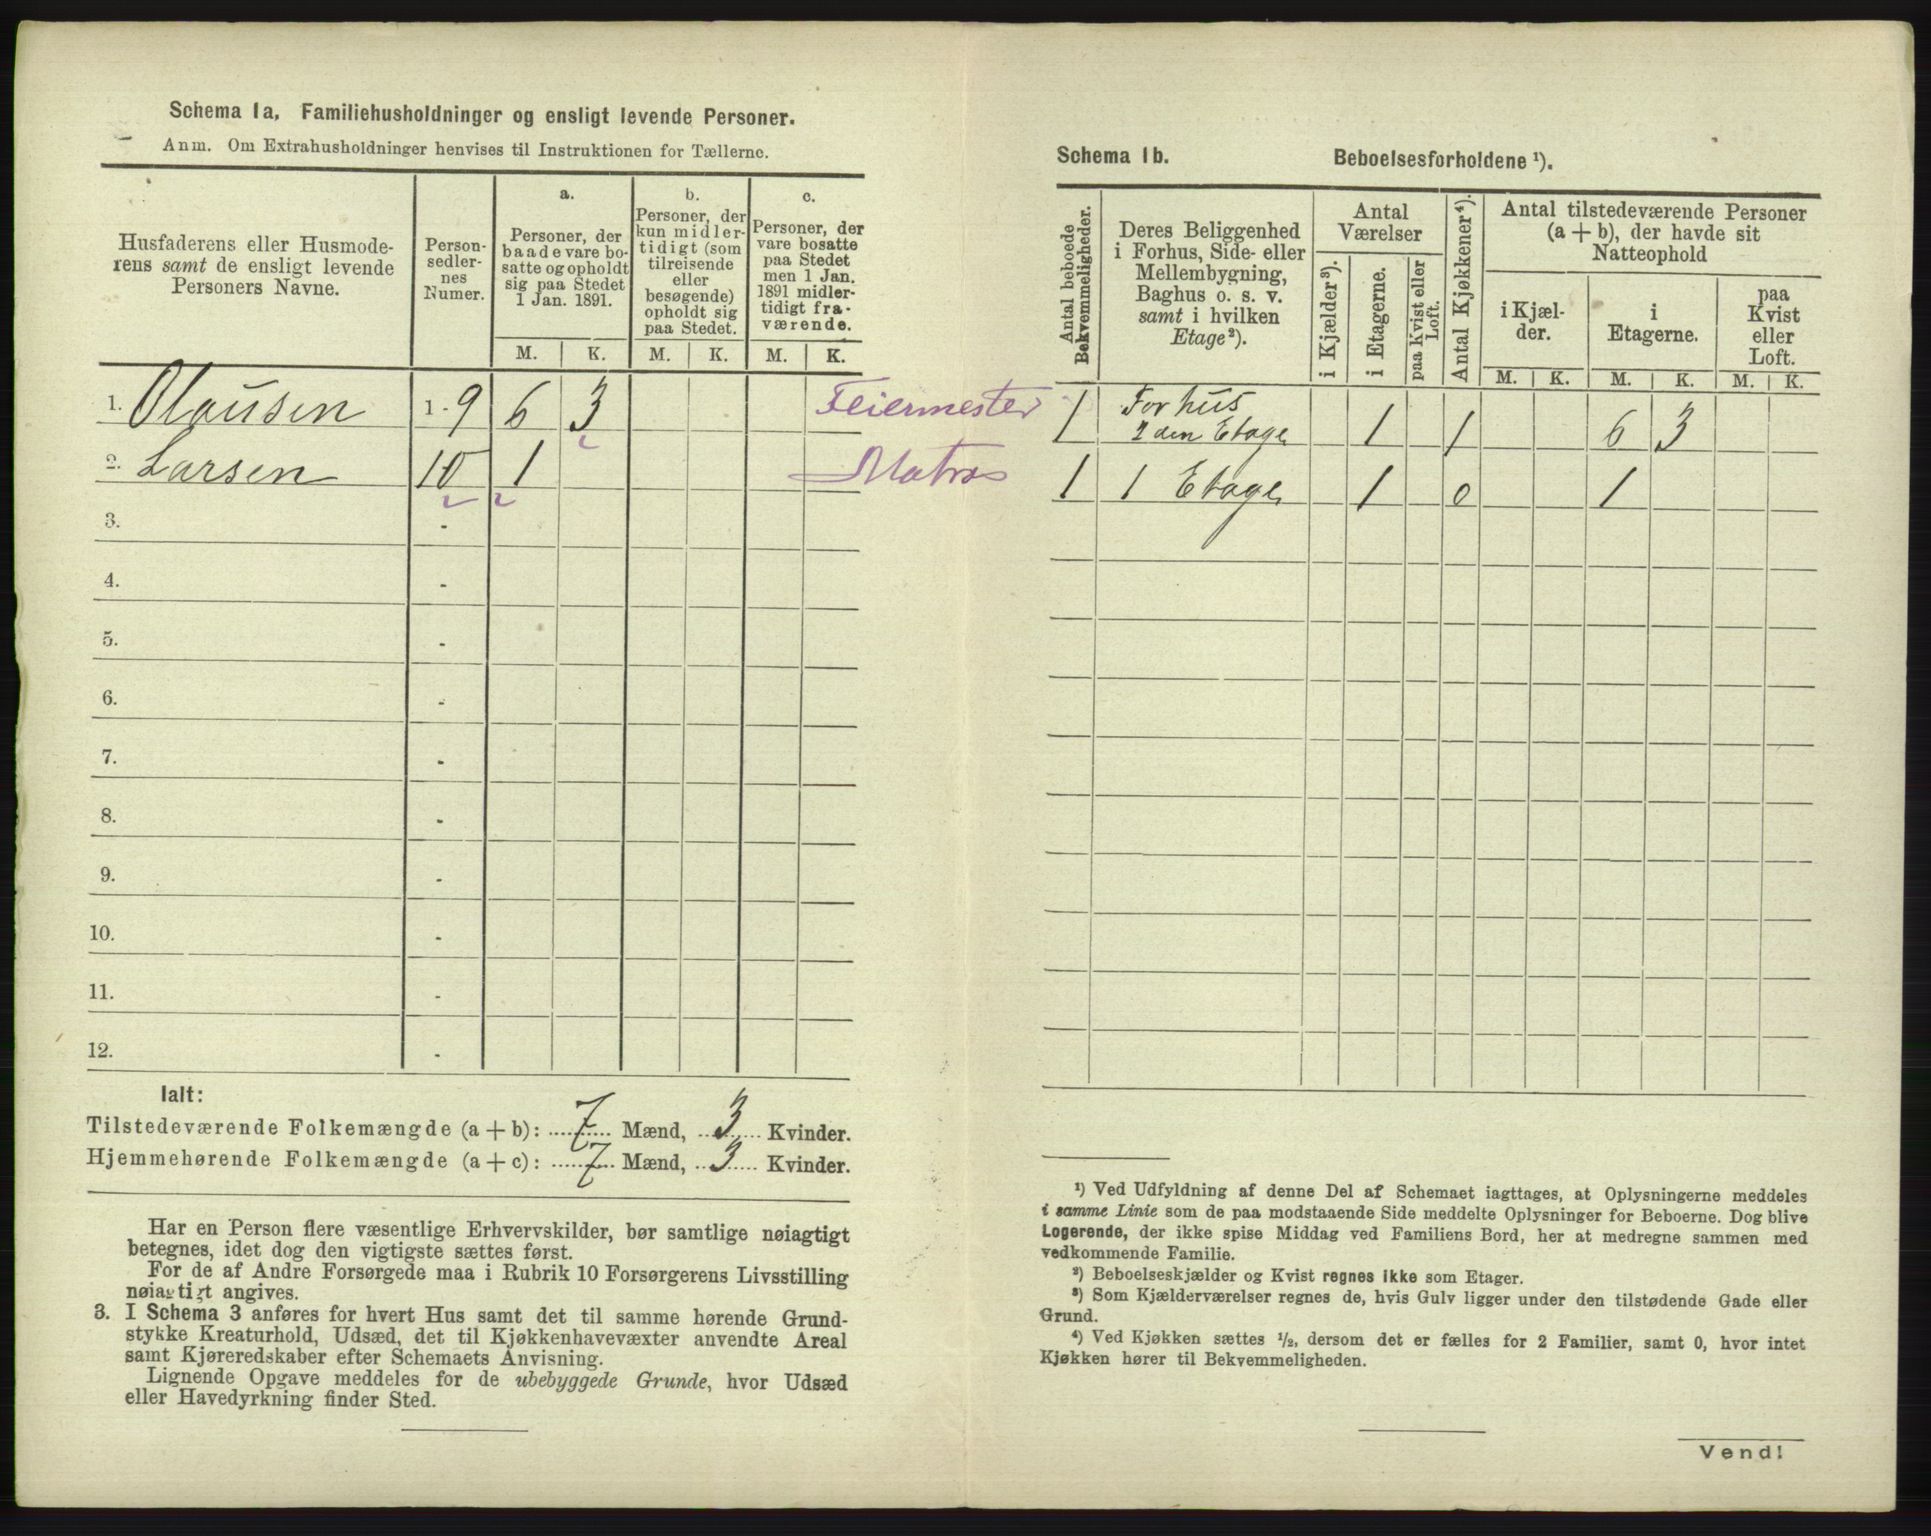 Schema 1a. Familiehusholdninger og ensligt levende Personer.
Anm. Om Extrahusholdninger henvises til Instruktionen for Tællerne.
Husfaderens eller Husmode-
rens samt de ensligt levende
Personers Navne.
Person-
sedler-
nes
Numer.
a.
Personer, der
baade vare bo-
satte og opholdt
sig paa Stedet
1 Jan. 1891.
b.
Personer, der
kun midler-
tidigt (som
tilreisende
eller
besøgende)
opholdt sig
paa Stedet.
c.
Personer, der
vare bosatte
paa Stedet
men 1 Jan.
1891 midler-
tidigt fra-
værende.
M. K. M. K. M. K.
1. Olausen 1-9 6 3 Feiermester
2. Larsen 10 1 Matros
3. -
4. -
5. -
6. -
7. -
8. -
9. -
10. -
11. -
12. -
Ialt:
Tilstedeværende Folkemængde (a + b): 7 Mænd, 3 Kvinder.
Hjemmehørende Folkemængde (a + c): 7 Mænd, 3 Kvinder.
Har en Person flere væsentlige Erhvervskilder, bør samtlige nøiagtigt
betegnes, idet dog den vigtigste sættes først.
For de af Andre Forsørgede maa i Rubrik 10 Forsørgerens Livsstilling
nøiagtigt angives.
3. I Schema 3 anføres for hvert Hus samt det til samme hørende Grund-
stykke Kreaturhold, Udsæd, det til Kjøkkenhavevæxter anvendte Areal
samt Kjøreredskaber efter Schemaets Anvisning.
Lignende Opgave meddeles for de ubebyggede Grunde, hvor Udsæd
eller Havedyrkning finder Sted.
Schema 1b. Beboelsesforholdene ¹).
Antal beboede
Bekvemmeligheder.
Deres Beliggenhed
i Forhus, Side- eller
Mellembygning,
Baghus o. s. v.
samt i hvilken
Etage²).
Antal
Værelser
i Kjælder³).
i Etagerne.
paa Kvist eller
Loft.
Antal Kjøkkener⁴).
Antal tilstedeværende Personer
(a + b), der havde sit
Natteophold
i Kjæl-
der.
i
Etagerne.
paa
Kvist
eller
Loft.
M. K. M. K. M. K.
1 Forhus
2 den Etage 1 1 6 3
1 1 Etage 1 0 1
¹) Ved Udfyldning af denne Del af Schemaet iagttages, at Oplysningerne meddeles
i samme Linie som de paa modstaaende Side meddelte Oplysninger for Beboerne. Dog blive
Logerende, der ikke spise Middag ved Familiens Bord, her at medregne sammen med
vedkommende Familie.
²) Beboelseskjælder og Kvist regnes ikke som Etager.
³) Som Kjælderværelser regnes de, hvis Gulv ligger under den tilstødende Gade eller
Grund.
⁴) Ved Kjøkken sættes ½, dersom det er fælles for 2 Familier, samt 0, hvor intet
Kjøkken hører til Bekvemmeligheden.
Vend!